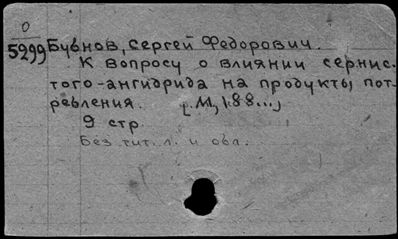 0
5299
Бубнов, Сергей Федорович.
К вопросу о влиянии сернис-
того-ангидрида на продукты пот-
ребления. [М, 188...]
9 стр.
Без тит. л. и обл.